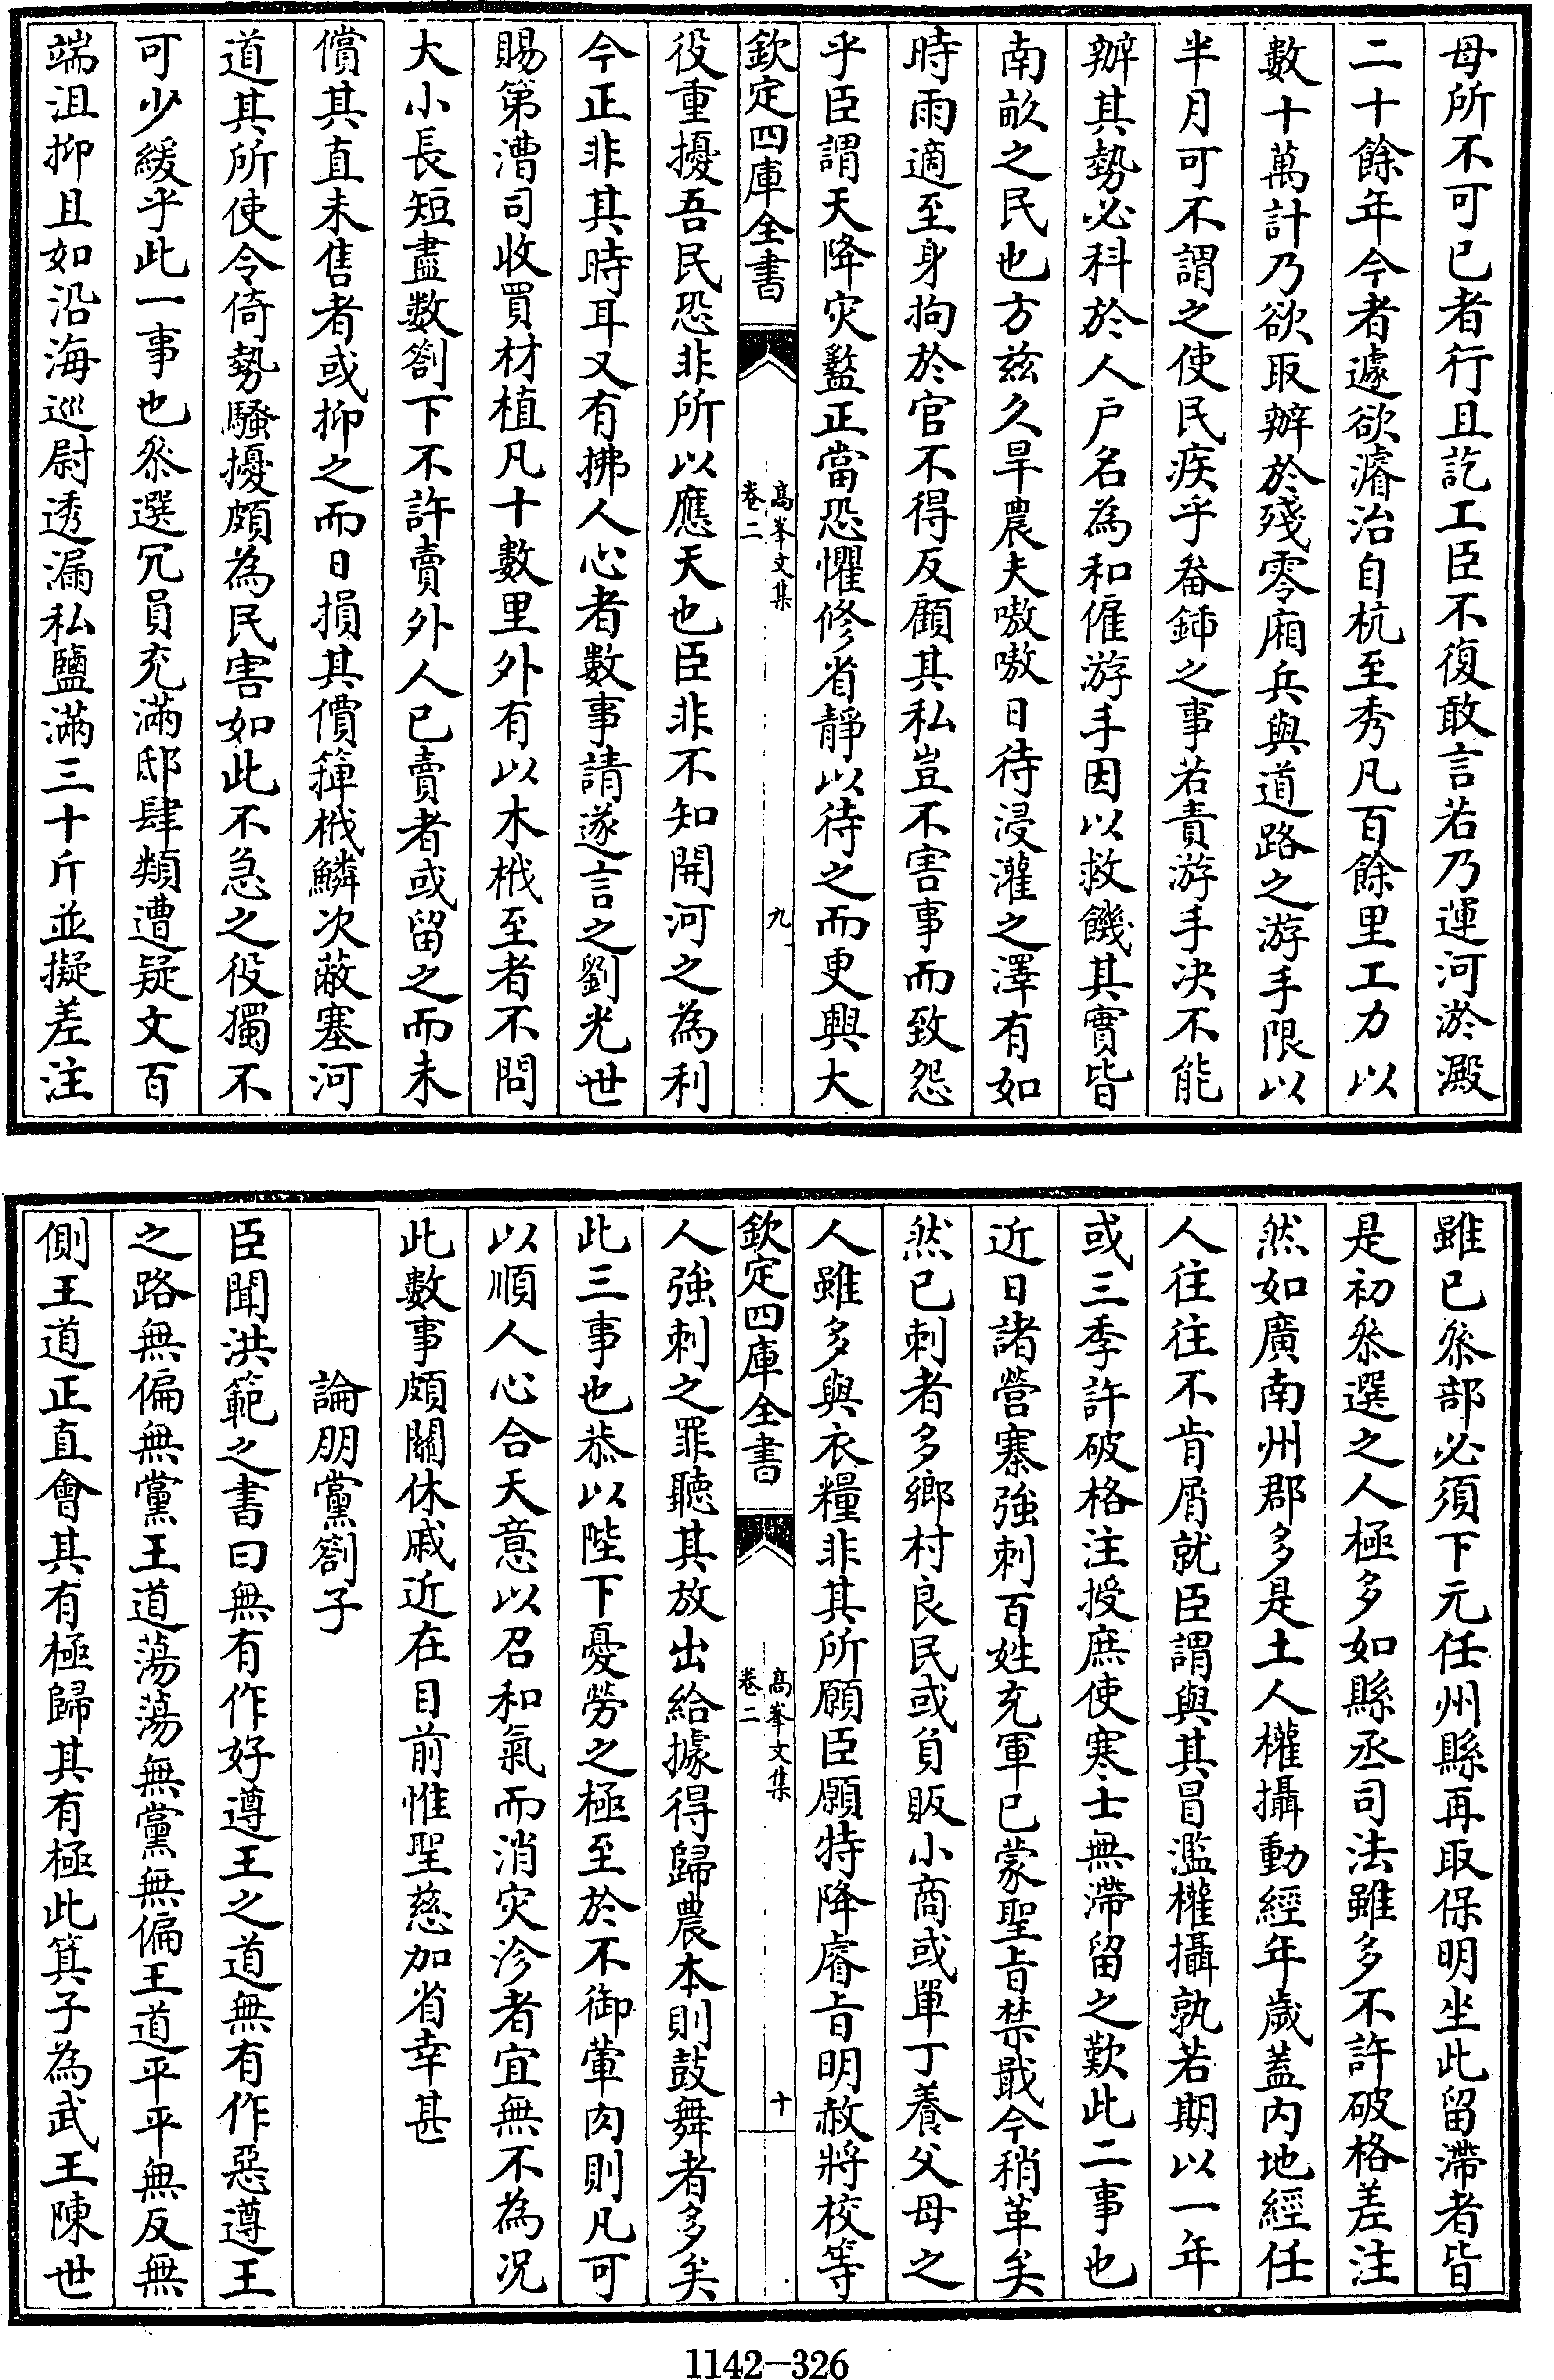 母所不可已者行且訖工臣不復敢言若乃運河淤澱
二十餘年今者遽欲濬治自杭至秀凡百餘里工力以
數十萬計乃欲取辦於殘零廂兵與道路之游手限以
半月可不謂之使民疾乎畚鍤之事若責游手决不能
辦其勢必科於人户名為和僱游手因以救饑其實皆
南畝之民也方兹久旱農夫嗷嗷日待浸灌之澤有如
時雨適至身拘於官不得反顧其私豈不害事而致怨
乎臣謂天降灾盭正當恐懼修省靜以待之而更興大
欽定四庫全書
高峯文集
卷二
九
役重擾吾民恐非所以應天也臣非不知開河之為利
今正非其時耳又有拂人心者數事請遂言之劉光世
賜第漕司收買材植凡十數里外有以木栰至者不問
大小長短盡數劄下不許賣外人已賣者或留之而未
償其直未售者或抑之而日損其價簰栰鱗次蔽塞河
道其所使令倚勢騷擾頗為民害如此不急之役獨不
可少緩乎此一事也叅選冗員充滿邸肆類遭疑文百
端沮抑且如沿海巡尉透漏私鹽滿三十斤並擬差注
雖已叅部必須下元任州縣再取保明坐此留滯者皆
是初叅選之人極多如縣丞司法雖多不許破格差注
然如廣南州郡多是土人權攝動經年歲蓋内地經任
人往往不肯屑就臣謂與其冒濫權攝孰若期以一年
或三季許破格注授庶使寒士無滯留之歎此二事也
近日諸營寨強刺百姓充軍已蒙聖旨禁戢今稍革矣
然已刺者多鄉村良民或負販小商或單丁養父母之
人雖多與衣糧非其所願臣願特降睿旨明赦將校等
欽定四庫全書
高峯文集
卷二
十
人強刺之罪聽其放出給據得歸農本則鼓舞者多矣
此三事也恭以陛下憂勞之極至於不御葷肉則凡可
以順人心合天意以召和氣而消灾沴者宜無不為况
此數事頗關休戚近在目前惟聖慈加省幸甚
論朋黨劄子
臣聞洪範之書曰無有作好遵王之道無有作惡遵王
之路無偏無黨王道蕩蕩無黨無偏王道平平無反無
側王道正直會其有極歸其有極此箕子為武王陳世
1142-326